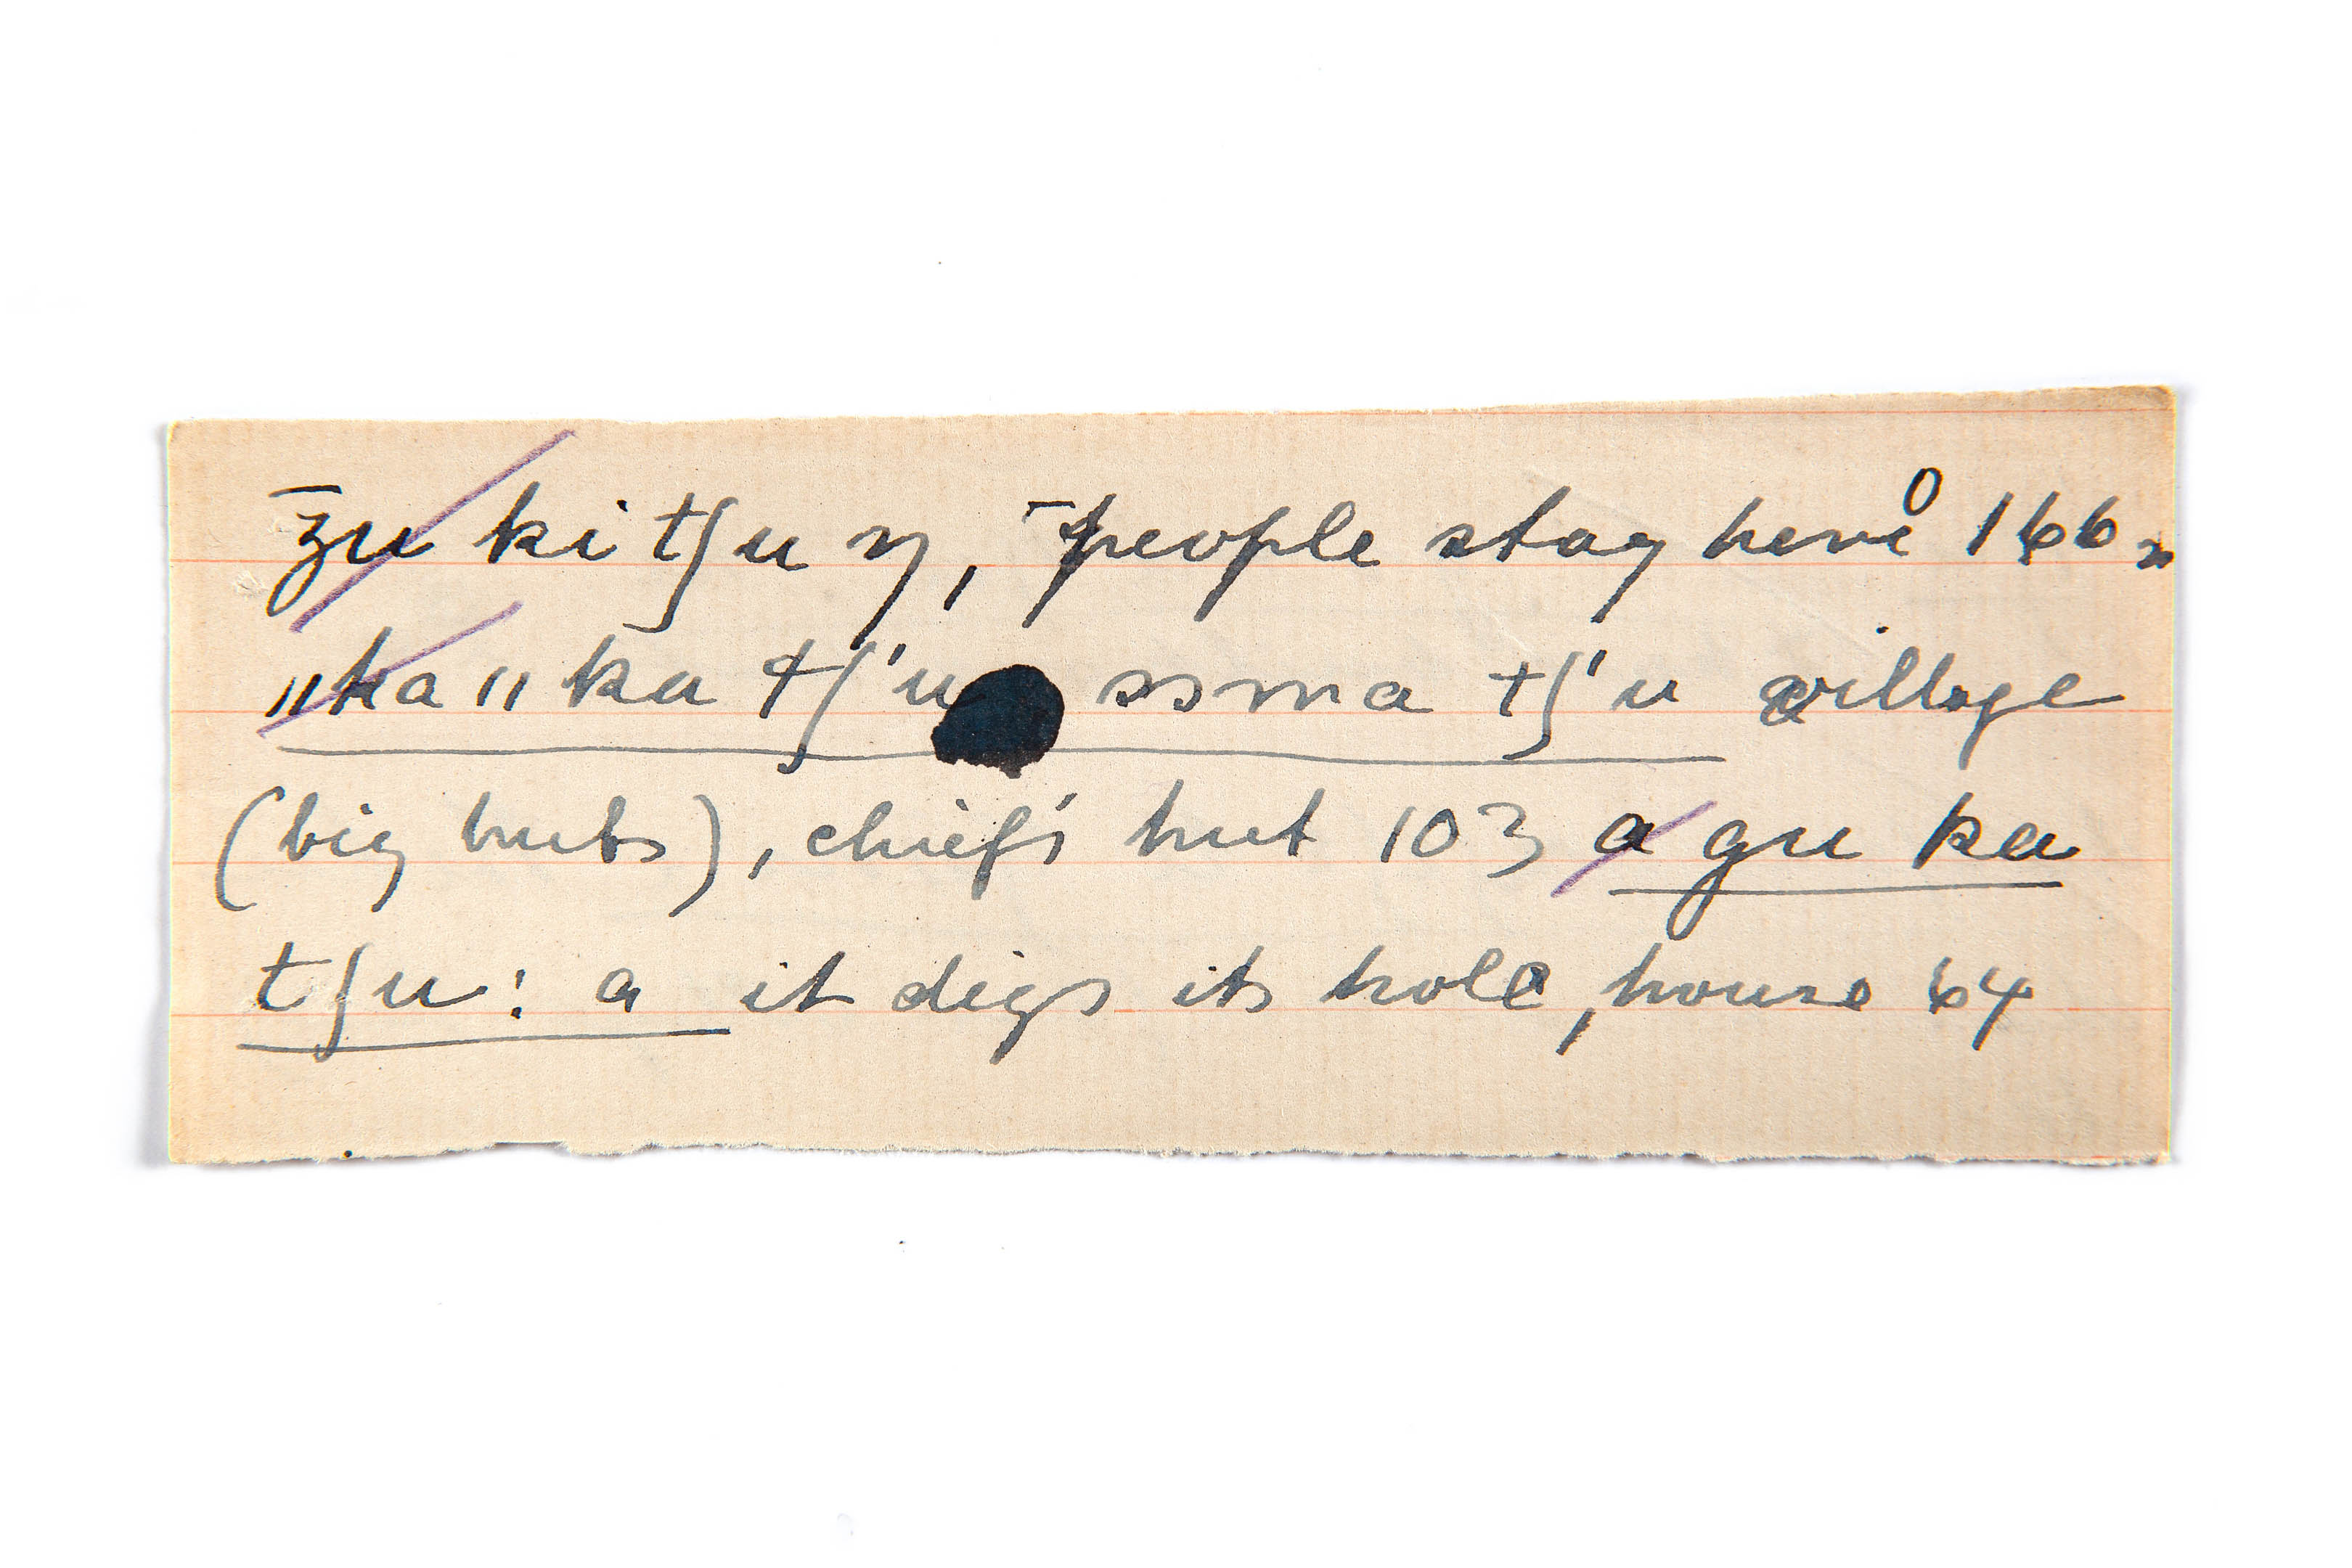 ʒ̄u ki tʃu ŋ, ˉpeople stay here 166
"ka" ka tʃ'u ssma tʃ'u village
(big huts), chief's hut 103 a gu ka
tʃu: a it digs its hole, house 64